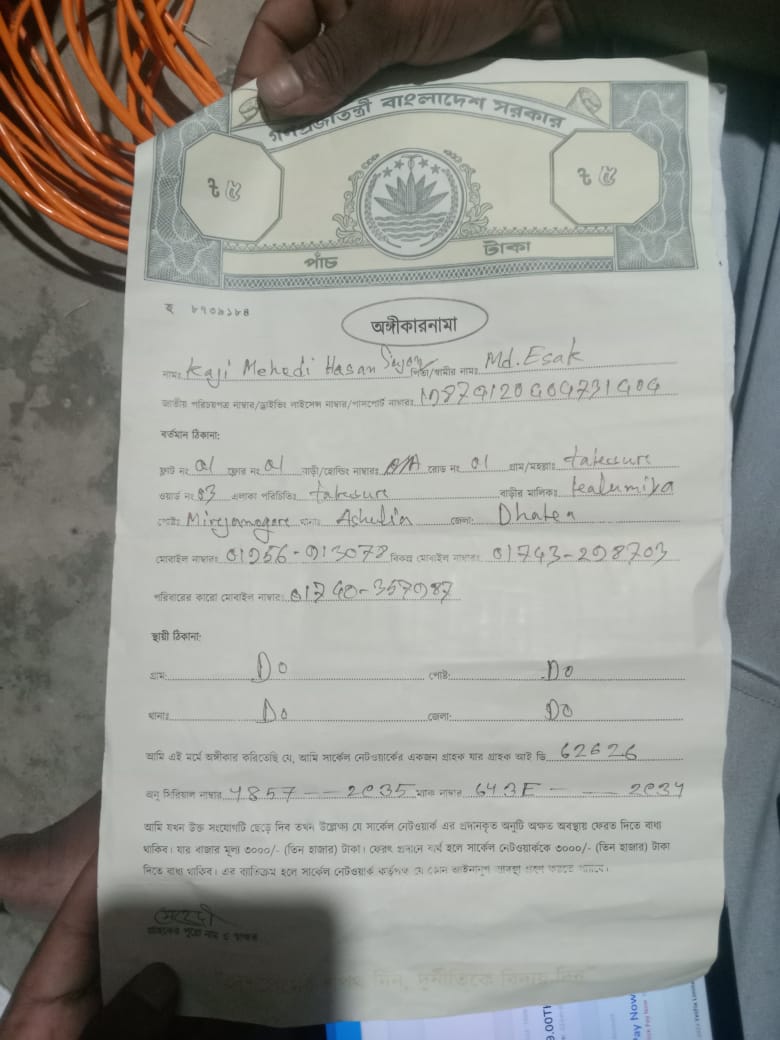 গণপ্রজাতন্ত্রী বাংলাদেশ সরকার
৳ ৫ ৳ ৫
পাঁচ টাকা
ছ ৮৭৩৯১৮৪
অঙ্গীকারনামা
নাম: Kaji Mehedi Hasan পিতা/স্বামীর নাম: Md. Esak
জাতীয় পরিচয়পত্র নাম্বার/ড্রাইভিং লাইসেন্স নাম্বার/পাসপোর্ট নাম্বার:
বর্তমান ঠিকানা:
ফ্লাট নং 01 ফ্লোর নং 01 বাড়ী/হোল্ডিং নাম্বার: N/A রোড নং 01 গ্রাম/মহল্লা: taressure
ওয়ার্ড নং 03 এলাকা পরিচিতি: taressure বাড়ীর মালিক: tealumiya
পোষ্ট: থানা: Ashulia জেলা:
মোবাইল নাম্বার: 01956-913078 বিকল্প মোবাইল নাম্বার: 01743-298703
পরিবারের কারো মোবাইল নাম্বার: 01740-357987
স্থায়ী ঠিকানা:
গ্রাম: Do পোষ্ট: Do
থানা: Do জেলা: Do
আমি এই মর্মে অঙ্গীকার করিতেছি যে, আমি সার্কেল নেটওয়ার্কের একজন গ্রাহক যার গ্রাহক আই ডি 62626
অনু সিরিয়াল নাম্বার 4857 — 2C35 ম্যাক নাম্বার 643E - — 2C34
আমি যখন উক্ত সংযোগটি ছেড়ে দিব তখন উল্লেখ্য যে সার্কেল নেটওয়ার্ক এর প্রদানকৃত অনুটি অক্ষত অবস্থায় ফেরত দিতে বাধ্য
থাকিব। যার বাজার মূল্য ৩০০০/- (তিন হাজার) টাকা। ফেরৎ প্রদানে ব্যর্থ হলে সার্কেল নেটওয়ার্ককে ৩০০০/- (তিন হাজার) টাকা
দিতে বাধ্য থাকিব। এর ব্যতিক্রম হলে সার্কেল নেটওয়ার্ক কর্তৃপক্ষ যে কোন আইনানুগ ব্যবস্থা গ্রহণ করতে পারিবে।
মেহেদী
গ্রাহকের পুরো নাম ও স্বাক্ষর
দিন, দুর্নীতিকে বিদায় দিন"
9.00
Pay Now